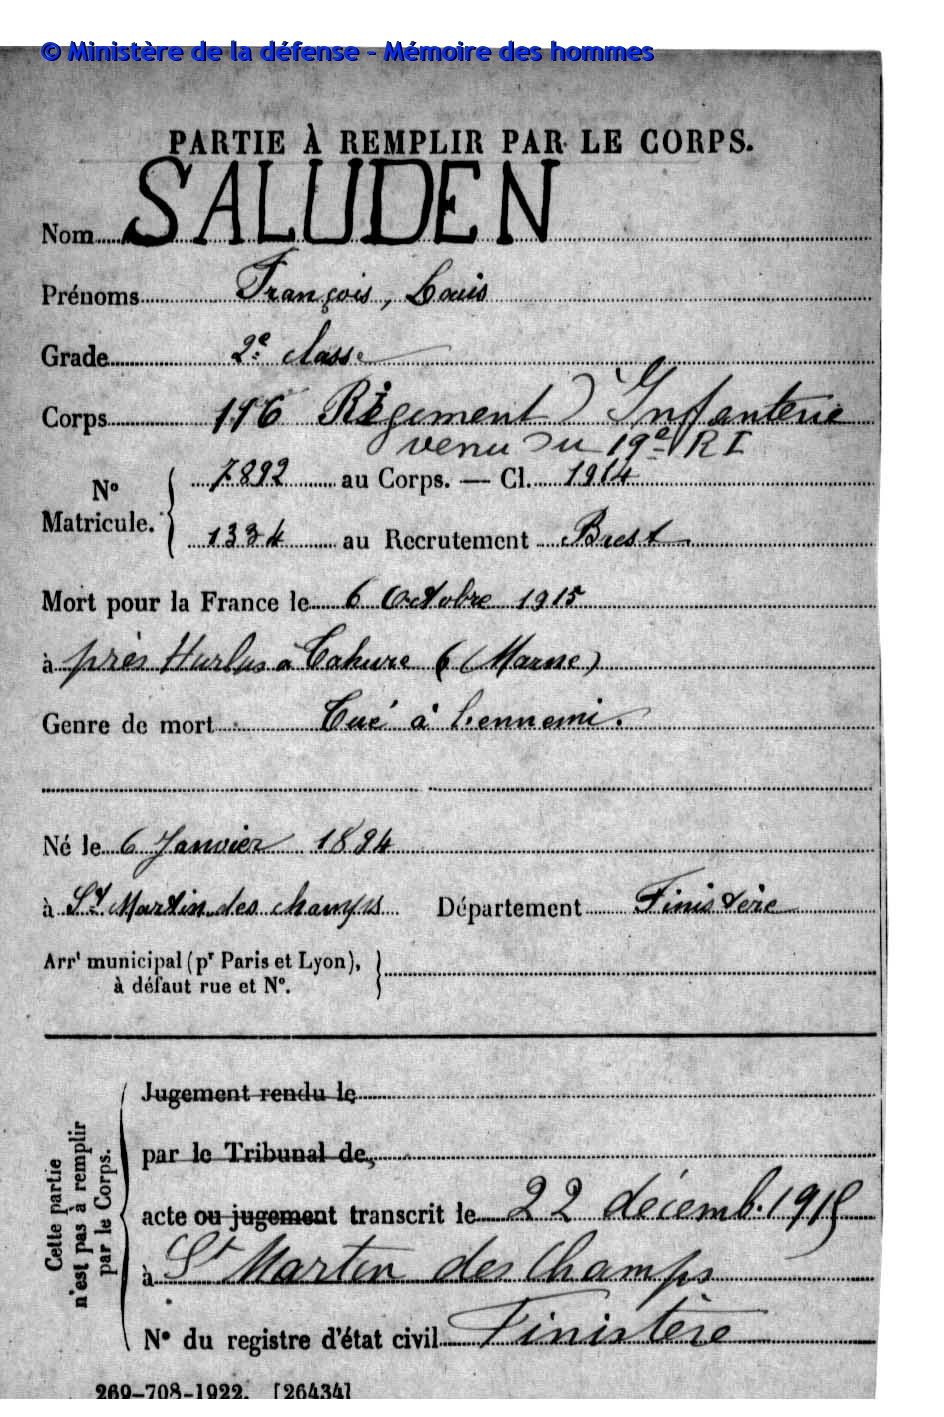 © Ministère de la défense - Mémoire des hommes
PARTIE À REMPLIR PAR LE CORPS.
Nom SALUDEN
Prénoms François, Louis
Grade 2e classe
Corps 116 Régiment d'Infanterie
venu du 19e RI
No Matricule. 7892 au Corps. — Cl. 1914
1334 au Recrutement Brest
Mort pour la France le 6 Octobre 1915
à près Hurlus à Tahure 6 (Marne)
Genre de mort Tué à l'ennemi.
Né le 6 Janvier 1894
à St Martin des champs Département Finistère
Arrt municipal (pr Paris et Lyon),
à défaut rue et No.
Cette partie n'est pas à remplir par le Corps.
Jugement rendu le
par le Tribunal de,
acte ou jugement transcrit le 22 décemb. 1915
à St Martin des Champs
No du registre d'état civil Finistère
269-708-1922. [26434]